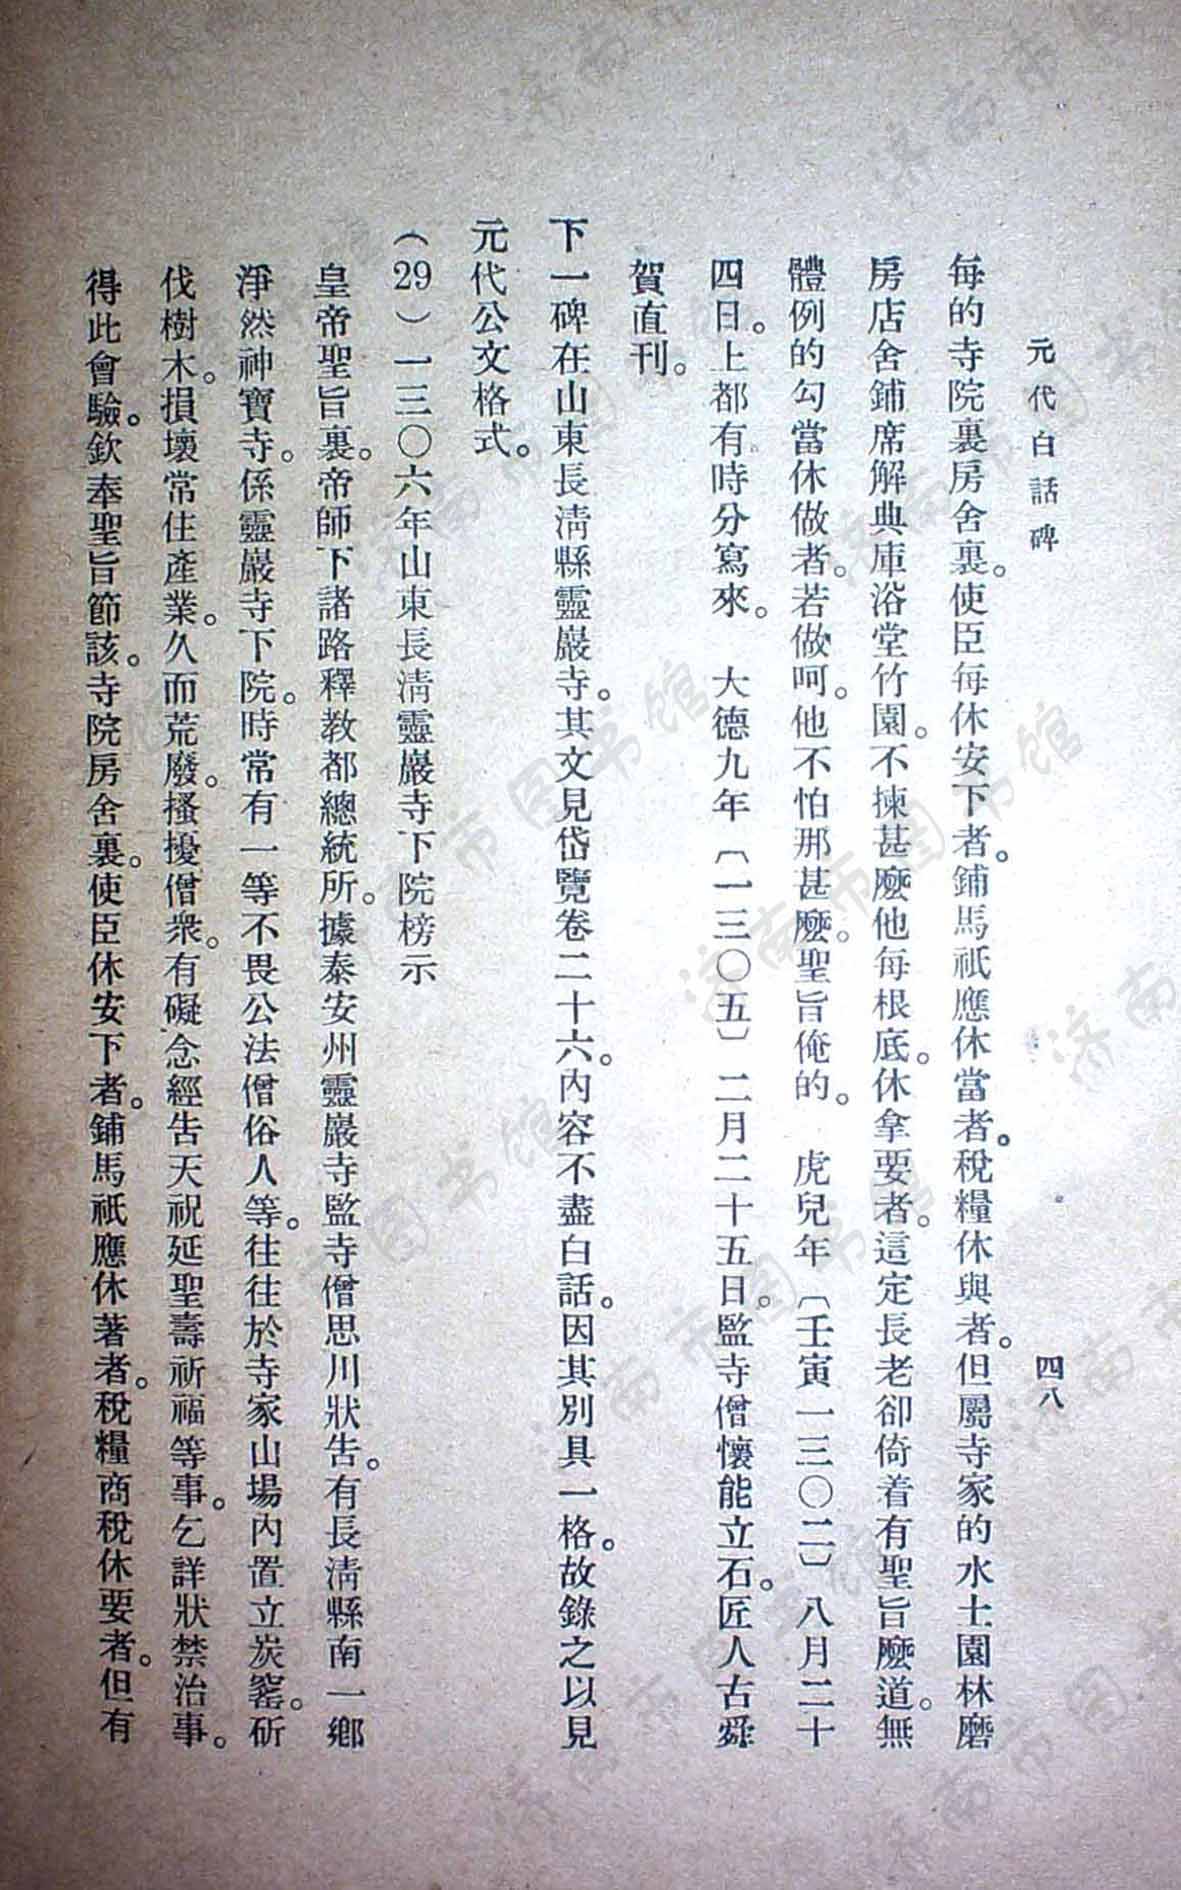 元代白話碑
四八
每的寺院裏房舍裏。使臣每休安下者。鋪馬祇應休當者。稅糧休與者。但屬寺家的水土園林磨
房店舍鋪席解典庫浴堂竹園。不揀甚麼他每根底。休拿要者。這定長老卻倚着有聖旨麼道。無
體例的勾當休做者。若做呵。他不怕那甚麼。聖旨俺的。 虎兒年〔壬寅一三〇二〕八月二十
四日。上都有。時分寫來。 大德九年〔一三〇五〕二月二十五日。監寺僧懷能立石。匠人古舜
賀直刊。
下一碑在山東長清縣靈巖寺。其文見岱覽卷二十六。內容不盡白話。因其別具一格。故錄之以見
元代公文格式。
(29) 一三〇六年山東長清靈巖寺下院榜示
皇帝聖旨裏。帝師下諸路釋教都總統所。據泰安州靈巖寺監寺僧思川狀告。有長清縣南一鄉
淨然神寶寺。係靈巖寺下院。時常有一等不畏公法僧俗人等。往往於寺家山場內置立炭窰。斫
伐樹木。損壞常住產業。久而荒廢。搔擾僧衆。有礙念經告天祝延聖壽祈福等事。乞詳狀禁治事。
得此會驗。欽奉聖旨節該。寺院房舍裏。使臣休安下者。鋪馬祇應休著者。稅糧商稅休要者。但有
济南市图书馆
济南市图书馆
济南市图书馆
济南市图书馆